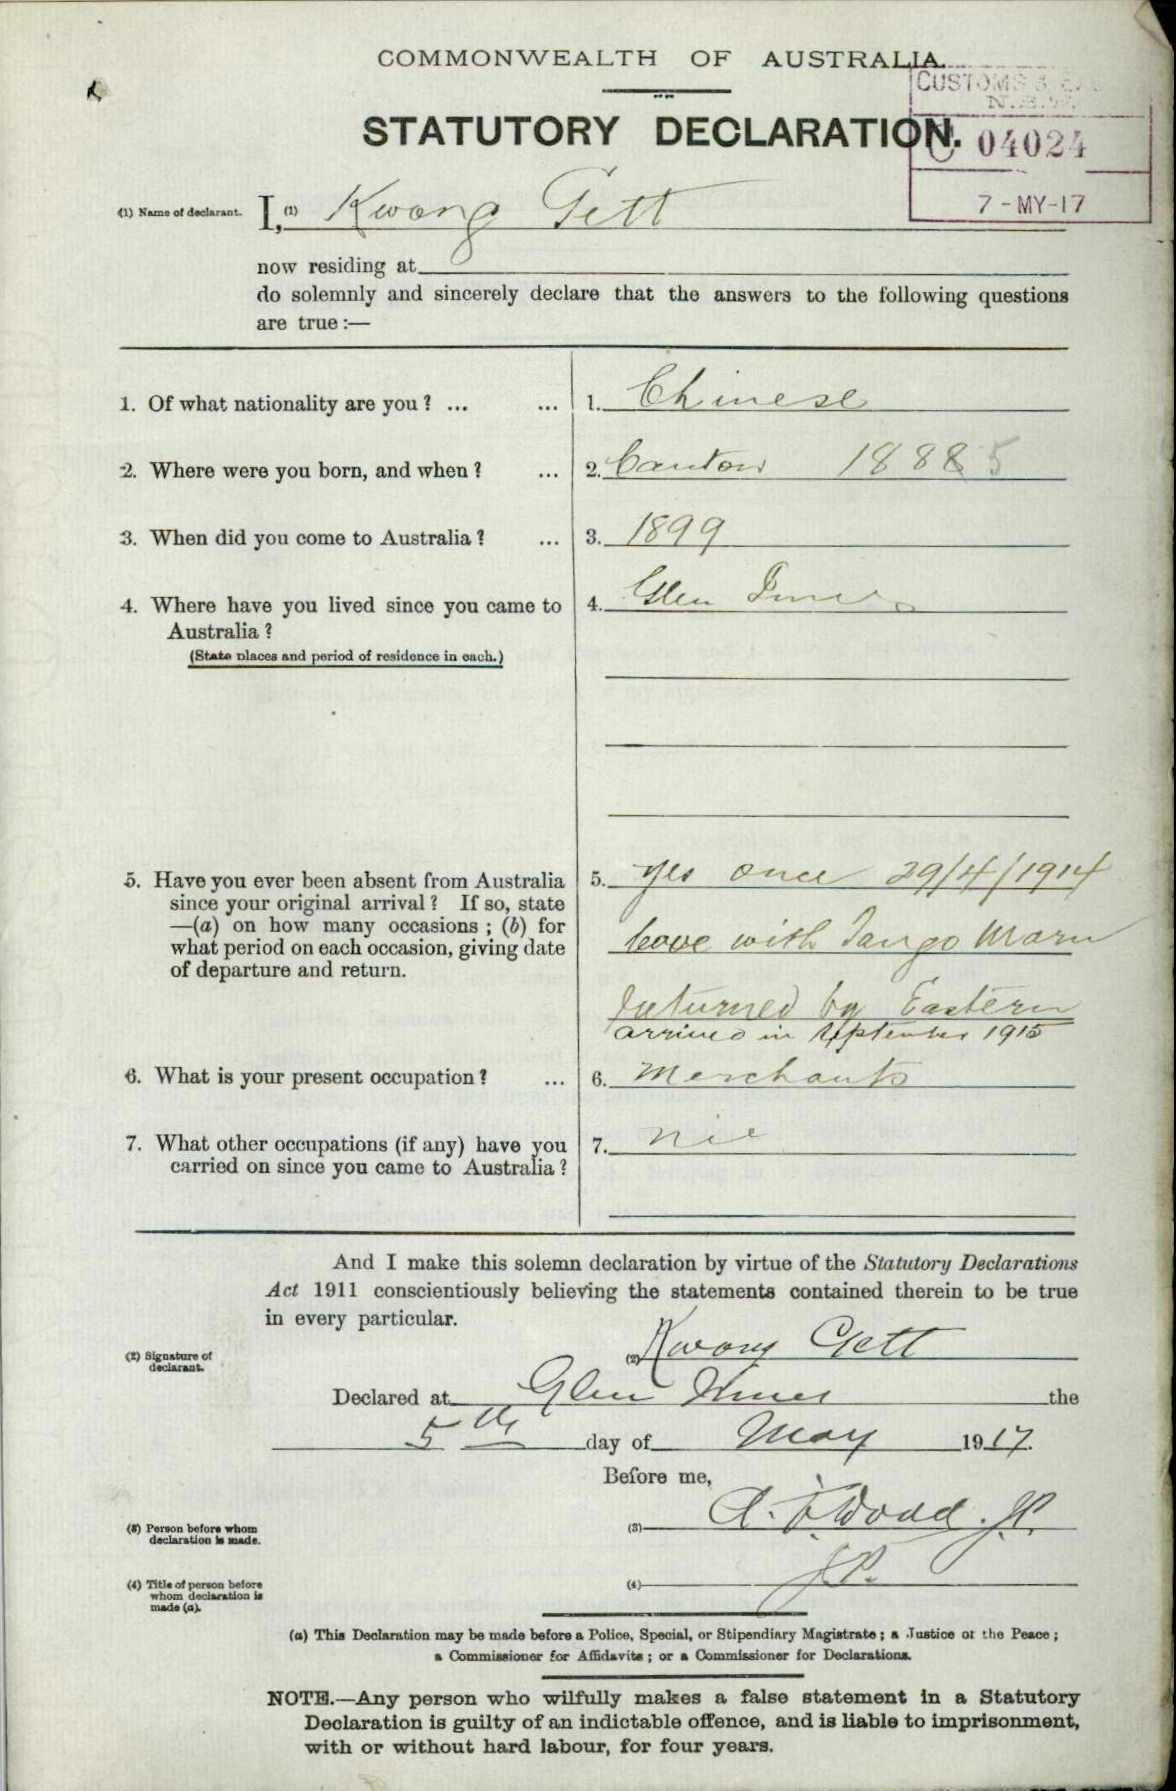 COMMONWEALTH OF AUSTRALIA.
CUSTOMS & EX
N.S.W.
STATUTORY DECLARATION.
C 04024
7-MY-17
(1) Name of declarant. I, (1) Kwong Gett
now residing at
do solemnly and sincerely declare that the answers to the following questions
are true:—
1. Of what nationality are you? ... ... 1. Chinese
2. Where were you born, and when? ... 2. Canton 1888 5
3. When did you come to Australia? ... 3. 1899
4. Where have you lived since you came to 4. Glen Innes
Australia?
(State places and period of residence in each.)
5. Have you ever been absent from Australia 5. Yes once 29/4/1914
since your original arrival? If so, state
—(a) on how many occasions; (b) for
what period on each occasion, giving date leave with Tango Maru
of departure and return.
returned by Eastern
arrived in September 1915
6. What is your present occupation? ... 6. Merchants
7. What other occupations (if any) have you 7. nil
carried on since you came to Australia?
And I make this solemn declaration by virtue of the Statutory Declarations
Act 1911 conscientiously believing the statements contained therein to be true
in every particular.
(2) Signature of declarant. (2) Kwong Gett
Declared at Glen Innes the
5th day of May 1917.
Before me,
(3) Person before whom declaration is made. (3) A. Wood. JP.
(4) Title of person before whom declaration is made (a). (4) J.P.
(a) This Declaration may be made before a Police, Special, or Stipendiary Magistrate; a Justice of the Peace;
a Commissioner for Affidavits; or a Commissioner for Declarations.
NOTE.—Any person who wilfully makes a false statement in a Statutory
Declaration is guilty of an indictable offence, and is liable to imprisonment,
with or without hard labour, for four years.